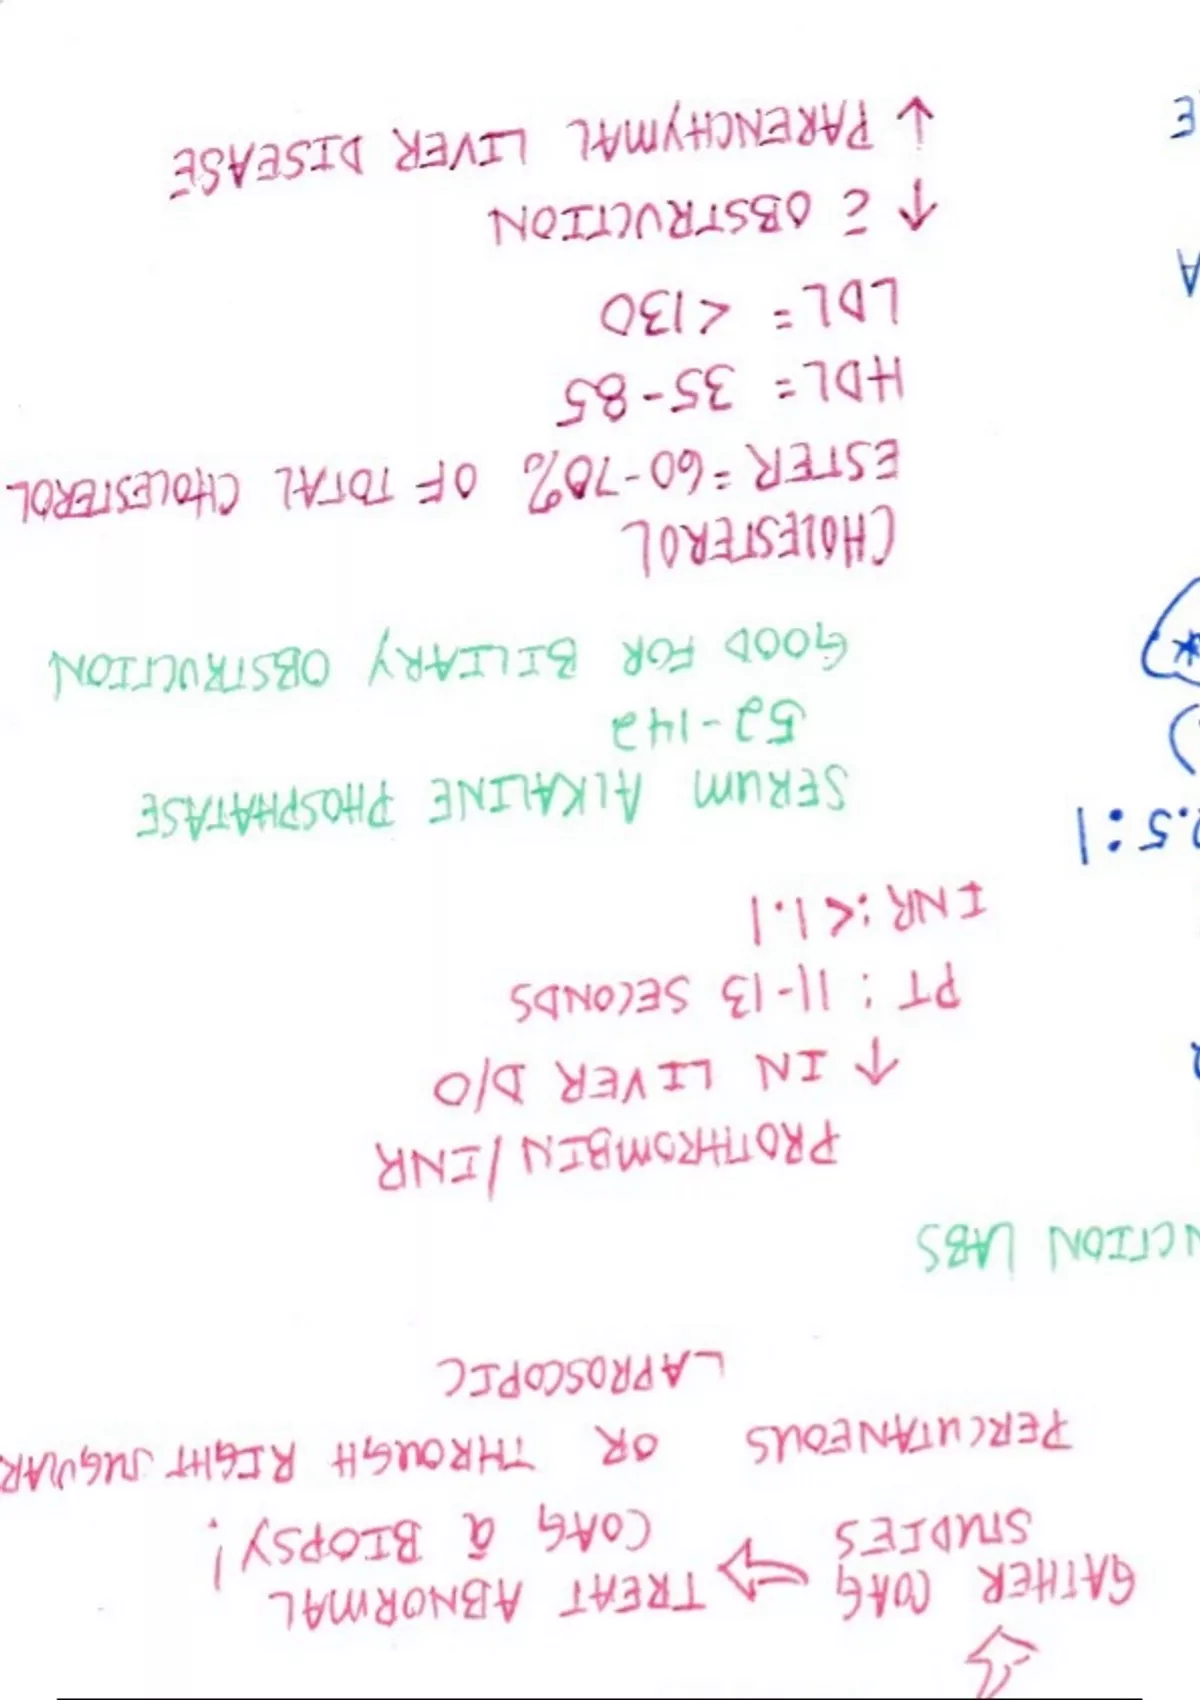 GATHER COAG ⇨ TREAT ABNORMAL
STUDIES COAG ā BIOPSY!
PERCUTANEOUS OR THROUGH RIGHT JUGULAR
LAPROSCOPIC
CTION LABS
PROTHROMBIN/INR
↑ IN LIVER D/O
PT: 11-13 SECONDS
INR: <1.1
.5:1
SERUM ALKALINE PHOSPHATASE
52-142
GOOD FOR BILIARY OBSTRUCTION
CHOLESTEROL
ESTER=60-70% OF TOTAL CHOLESTEROL
HDL= 35-85
LDL= <130
A
↑ c̄ OBSTRUCTION
↓ PARENCHYMAL LIVER DISEASE
E